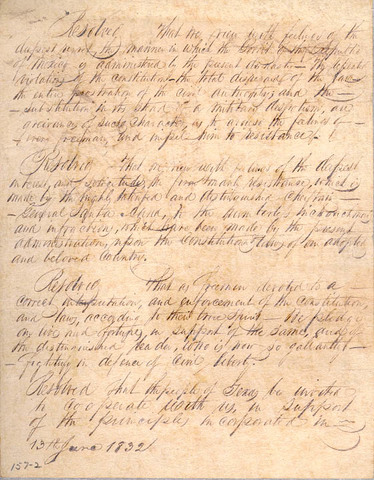 Resolved That we view with feelings of the
deepest interest the manner in which the Government of the Republic
of Mexico is administered by the present dynasty — The repeated
violations of the constitution — the total disregard of the law —
the entire prostration of the civil authority; and the —
— substitution in its stead of a military despotism, are
grievances of such character, as to arouse the feelings of
— every freeman, and impel him to resistance —
Resolved That we view with feelings of the deepest
interest, and solicitude, the firm and manly resistance, which is
made by the highly talented and distinguished Chieftain —
— General Santa Anna, to the numberless encroachments
and infractions, which have been made by the present
administration, upon the Constitution and laws of our adopted
and beloved Country.
Resolved That as freemen devoted to a
correct interpretation, and enforcement of the Constitution,
and laws, according to their true Spirit — We pledge
our lives and fortunes, in support of the same, and of
the distinguished leader, who is now so gallantly
— fighting in defence of Civil liberty.
Resolved That the people of Texas be invited
to cooperate with us, in support
of the principles incorporated in —
13th June 1832
157-2